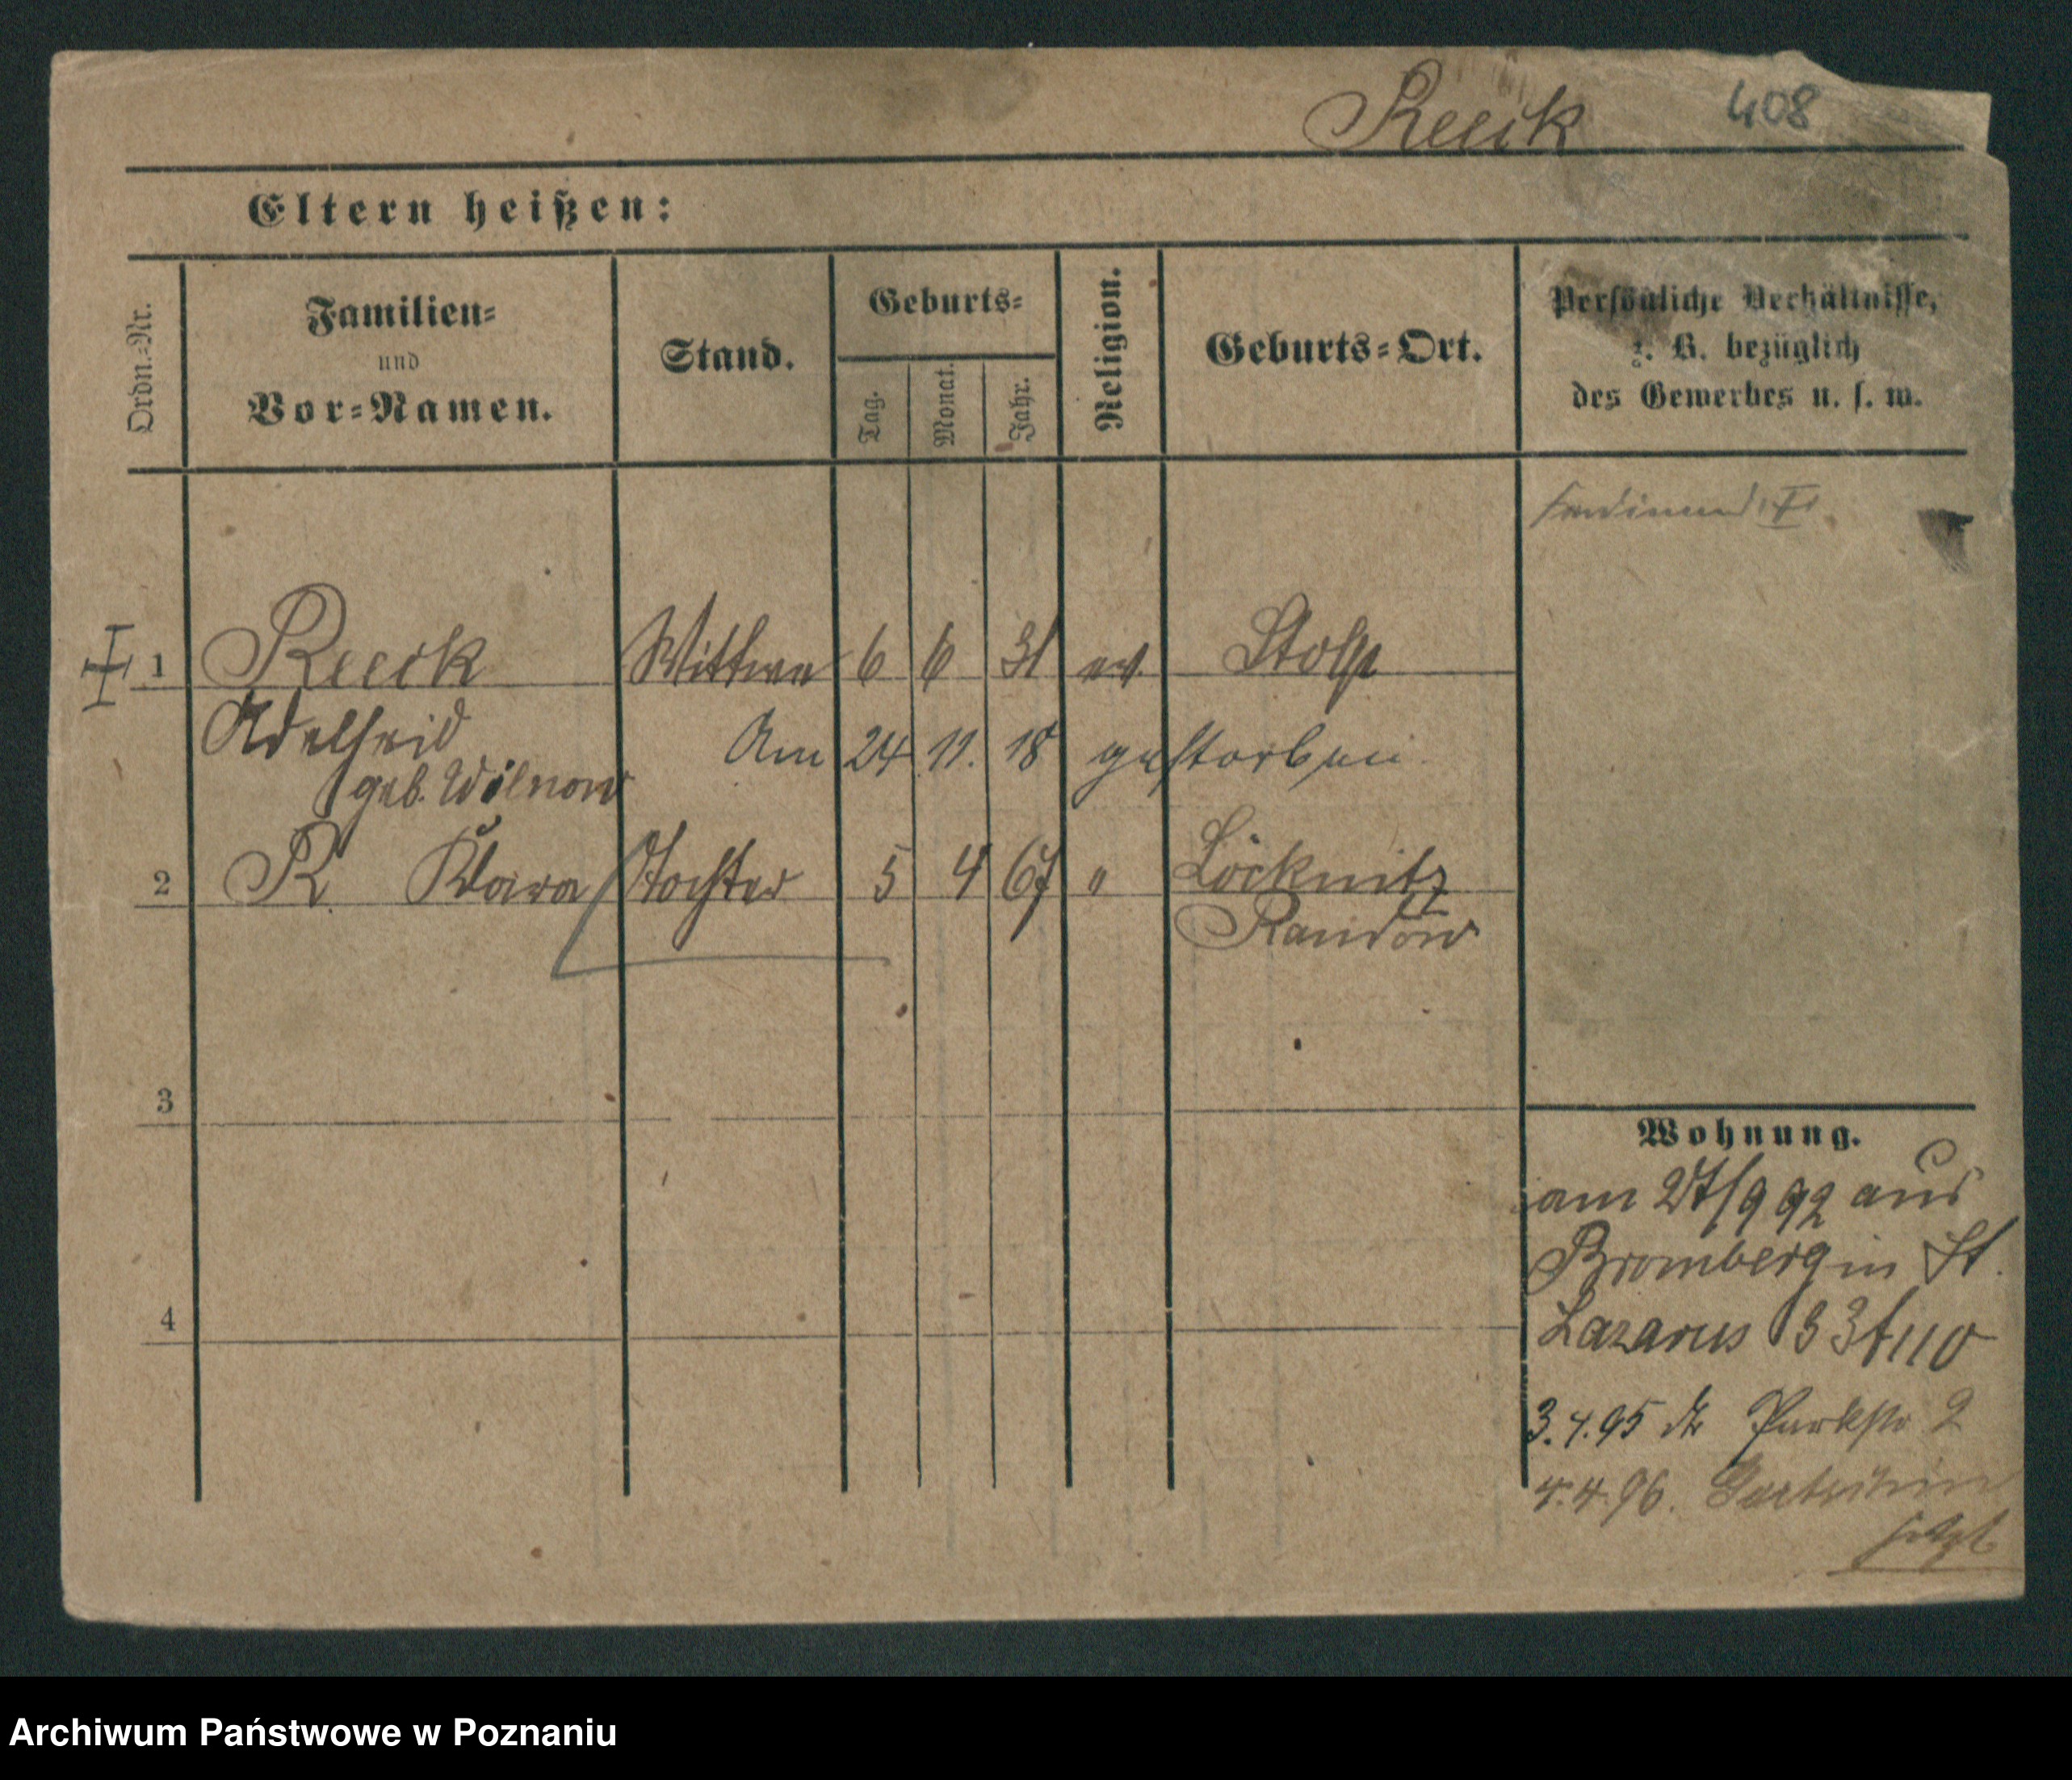 Reeck 408
Eltern heißen:
Ordn.-Nr.
Familien-
und
Vor-Namen.
Stand.
Geburts-
Tag.
Monat.
Jahr.
Religion.
Geburts-Ort.
Persönliche Verhältnisse,
z. B. bezüglich
des Gewerbes u. s. w.
1 Reeck Wittwe 6 6 31 ev. Stolp
Adelheid Am 24 11. 18 gestorben
geb. Wilnow
2 R. Klara Tochter 5 4 67 " Löcknitz
Randow
3
4
Wohnung.
am 27/9 92 aus
Bromberg in St.
Lazarus
3.4.95 Parkstr 2
4.4.96.
Archiwum Państwowe w Poznaniu